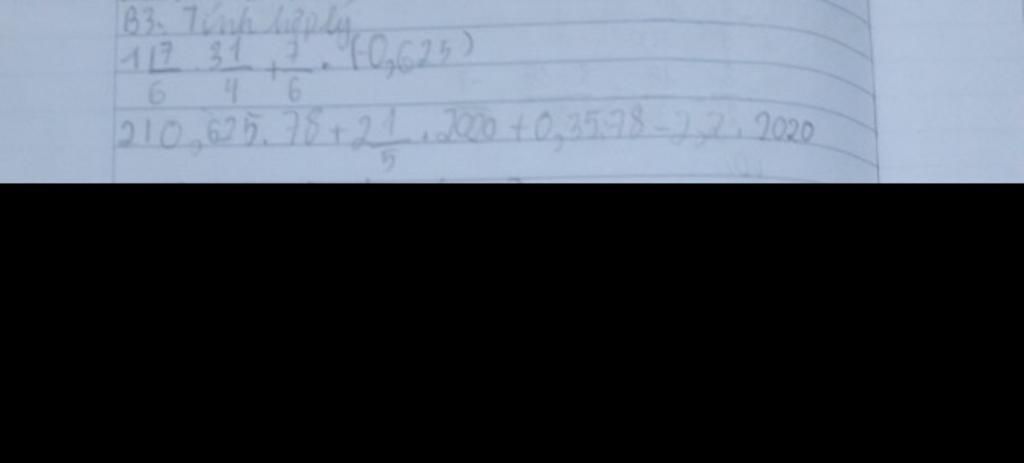 B3. Tính hợp lý
1) 7/6 . 3 1/4 + 7/6 . (-0,625)
2) 0,625 . 78 + 2 1/5 . 2020 + 0,35.78 - 2,2 . 2020